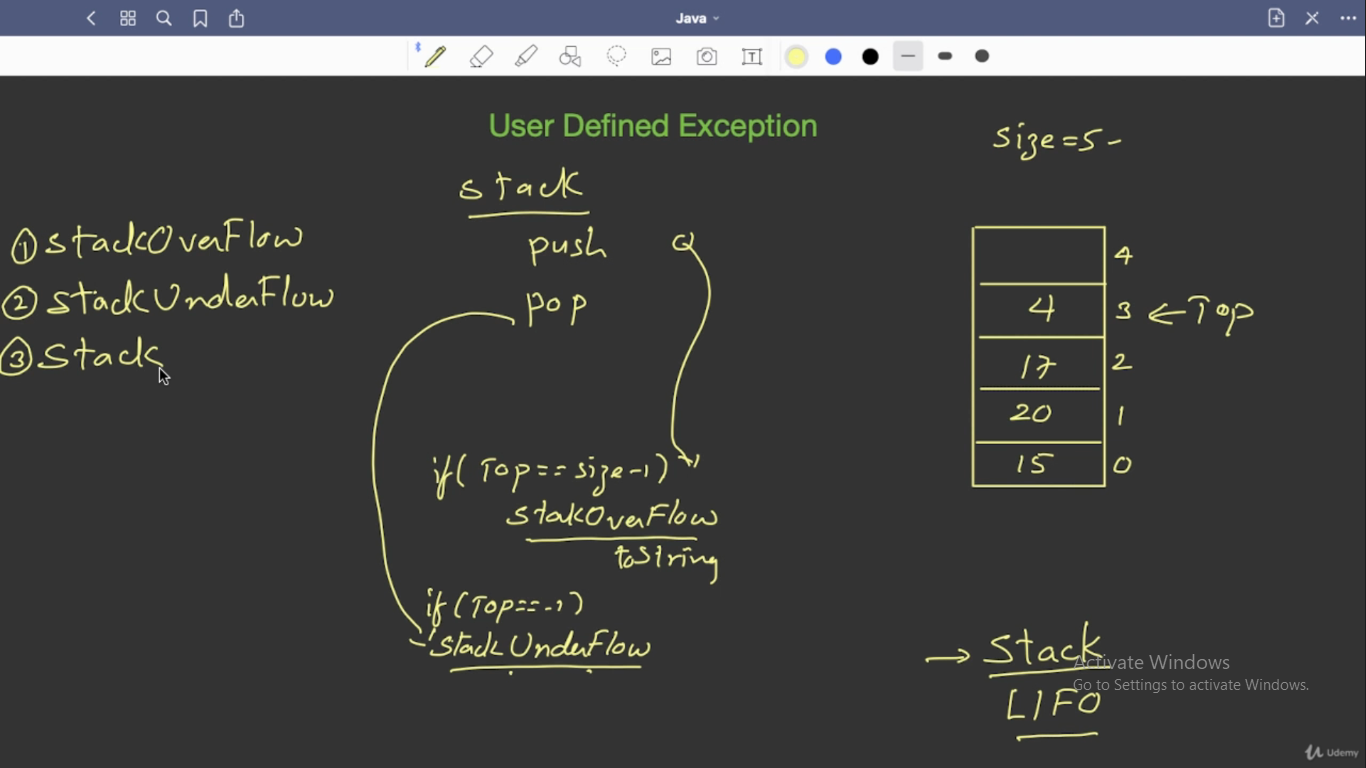 Java
T
User Defined Exception
size=5-
stack
① stackOverFlow
② stackUnderFlow
③ Stack
push
pop
if( Top==size-1)
stakOverFlow
toString
if(Top==-1)
StackUnderFlow
4
4 3 ← Top
17 2
20 1
15 0
→ Stack
LIFO
Activate Windows
Go to Settings to activate Windows.
Udemy